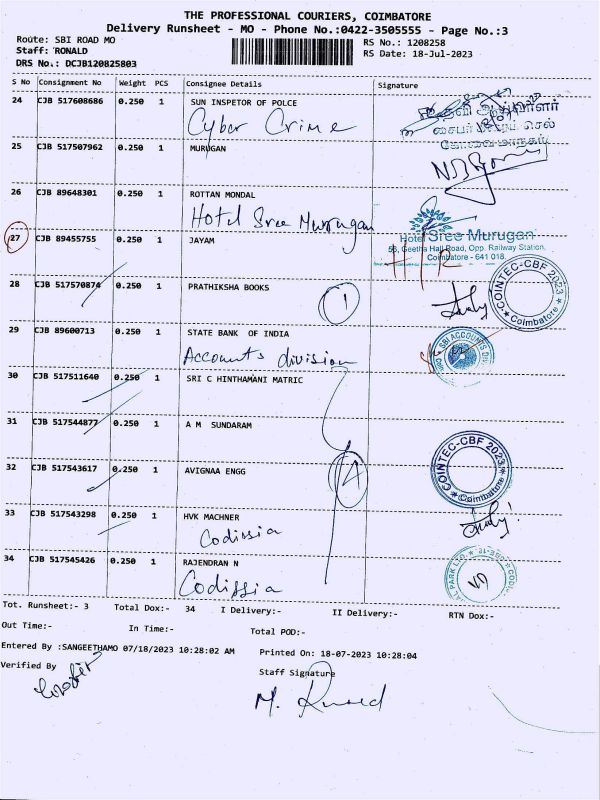 THE PROFESSIONAL COURIERS, COIMBATORE
Delivery Runsheet - MO - Phone No.:0422-3505555 - Page No.:3
Route: SBI ROAD MO
RS No.: 1208258
Staff: RONALD
RS Date: 18-Jul-2023
DRS No.: DCJB120825803
S No Consignment No Weight PCS Consignee Details Signature
24 CJB 517608686 0.250 1 SUN INSPETOR OF POLCE
Cyber Crime
சைபர் கிரைம் செல்
கோவை மாநகர்
25 CJB 517507962 0.250 1 MURUGAN
26 CJB 89648301 0.250 1 ROTTAN MONDAL
Hotel Sree Murugan
Hotel Sree Murugan
56, Geetha Hall Road, Opp. Railway Station,
Coimbatore - 641 018.
27 CJB 89455755 0.250 1 JAYAM
28 CJB 517570874 0.250 1 PRATHIKSHA BOOKS
1
COINTEC-CBF 2023
Coimbatore
29 CJB 89600713 0.250 1 STATE BANK OF INDIA
Accounts division
30 CJB 517511640 0.250 1 SRI C HINTHAMANI MATRIC
31 CJB 517544877 0.250 1 A M SUNDARAM
32 CJB 517543617 0.250 1 AVIGNAA ENGG
4
COINTEC-CBF 2023
Coimbatore
33 CJB 517543298 0.250 1 HVK MACHNER
Codissia
34 CJB 517545426 0.250 1 RAJENDRAN N
Codissia
Tot. Runsheet:- 3 Total Dox:- 34 I Delivery:- II Delivery:- RTN Dox:-
Out Time:- In Time:- Total POD:-
Entered By :SANGEETHAMO 07/18/2023 10:28:02 AM Printed On: 18-07-2023 10:28:04
Verified By Staff Signature